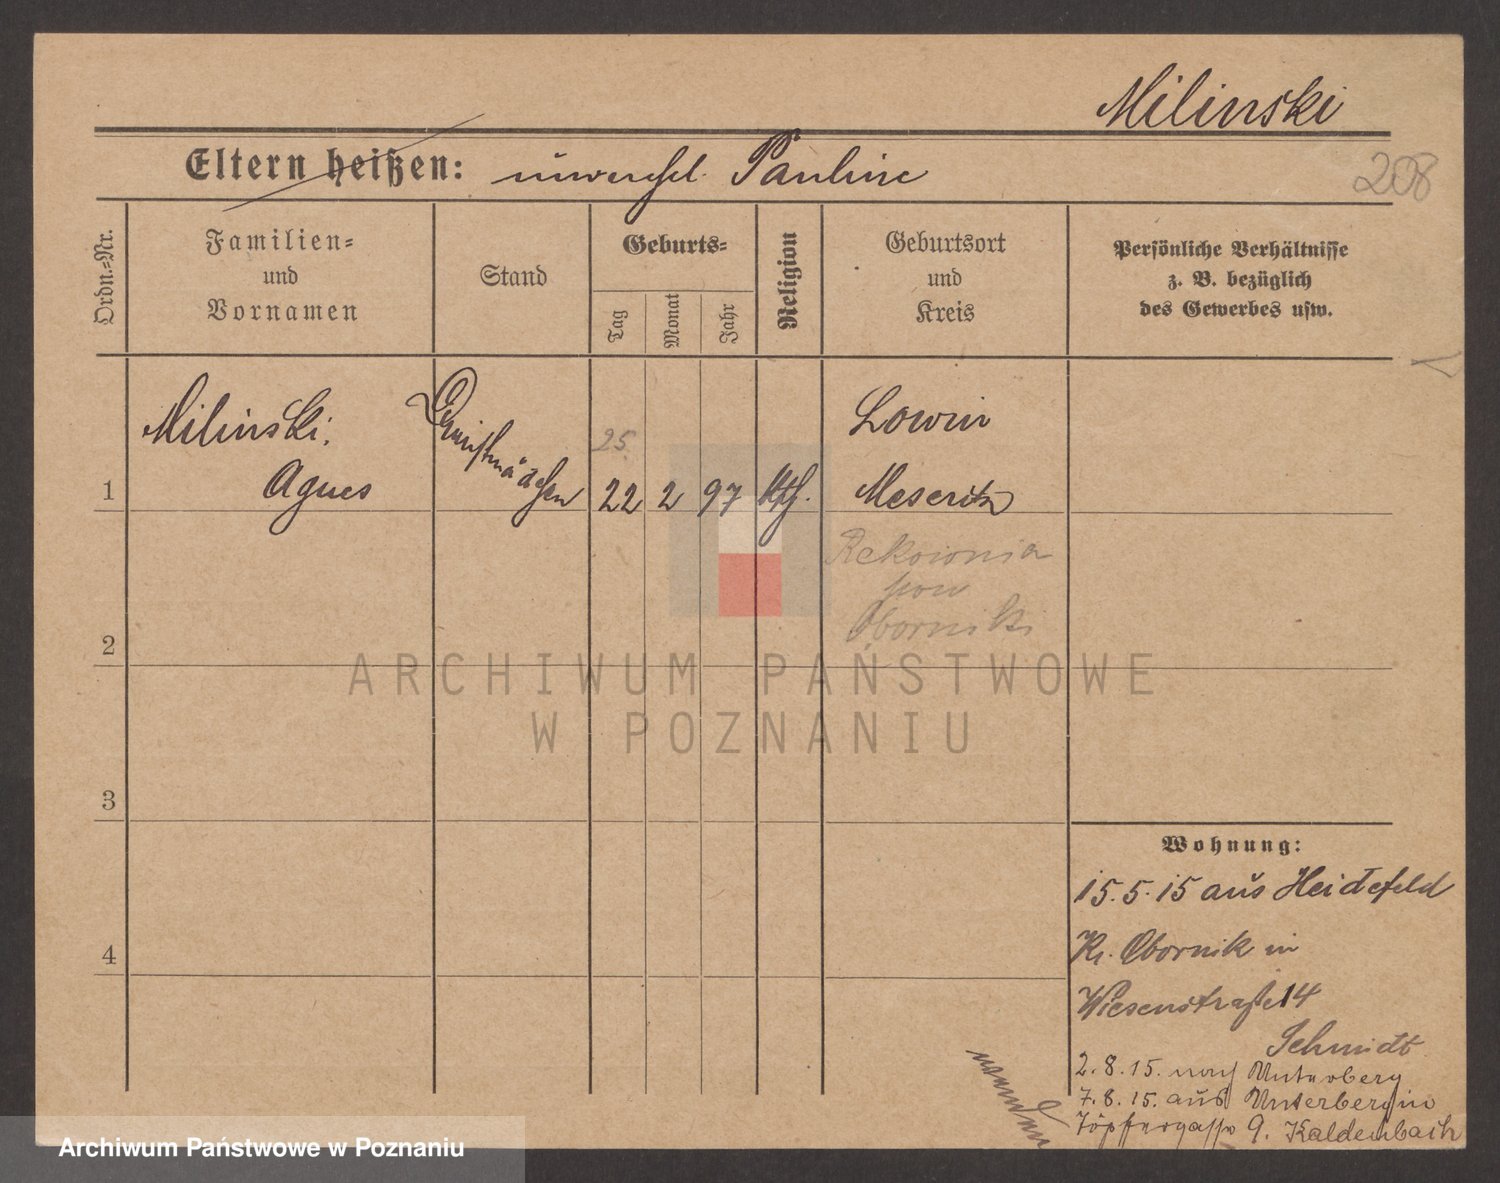 Milinski
Eltern heißen: unverehel. Pauline
208
Ordn.-Nr.
Familien-
und
Vornamen
Stand
Geburts-
Tag
Monat
Jahr
Religion
Geburtsort
und
Kreis
Persönliche Verhältnisse
z. B. bezüglich
des Gewerbes usw.
Milinski,
Agnes
Dienstmädchen
25.
1
22 2 97 kth.
Lowin
Meseritz
pow
Oborniki
2
3
4
ARCHIWUM PAŃSTWOWE
W POZNANIU
Wohnung:
15.5.15 aus Heidefeld
Kr. Obornik in
Wiesenstraße 14
Schmidt
2.8.15. nach Unterberg
7.8.15. aus Unterberg in
Töpfergasse 9. Kaldenbach
wenden
Archiwum Państwowe w Poznaniu